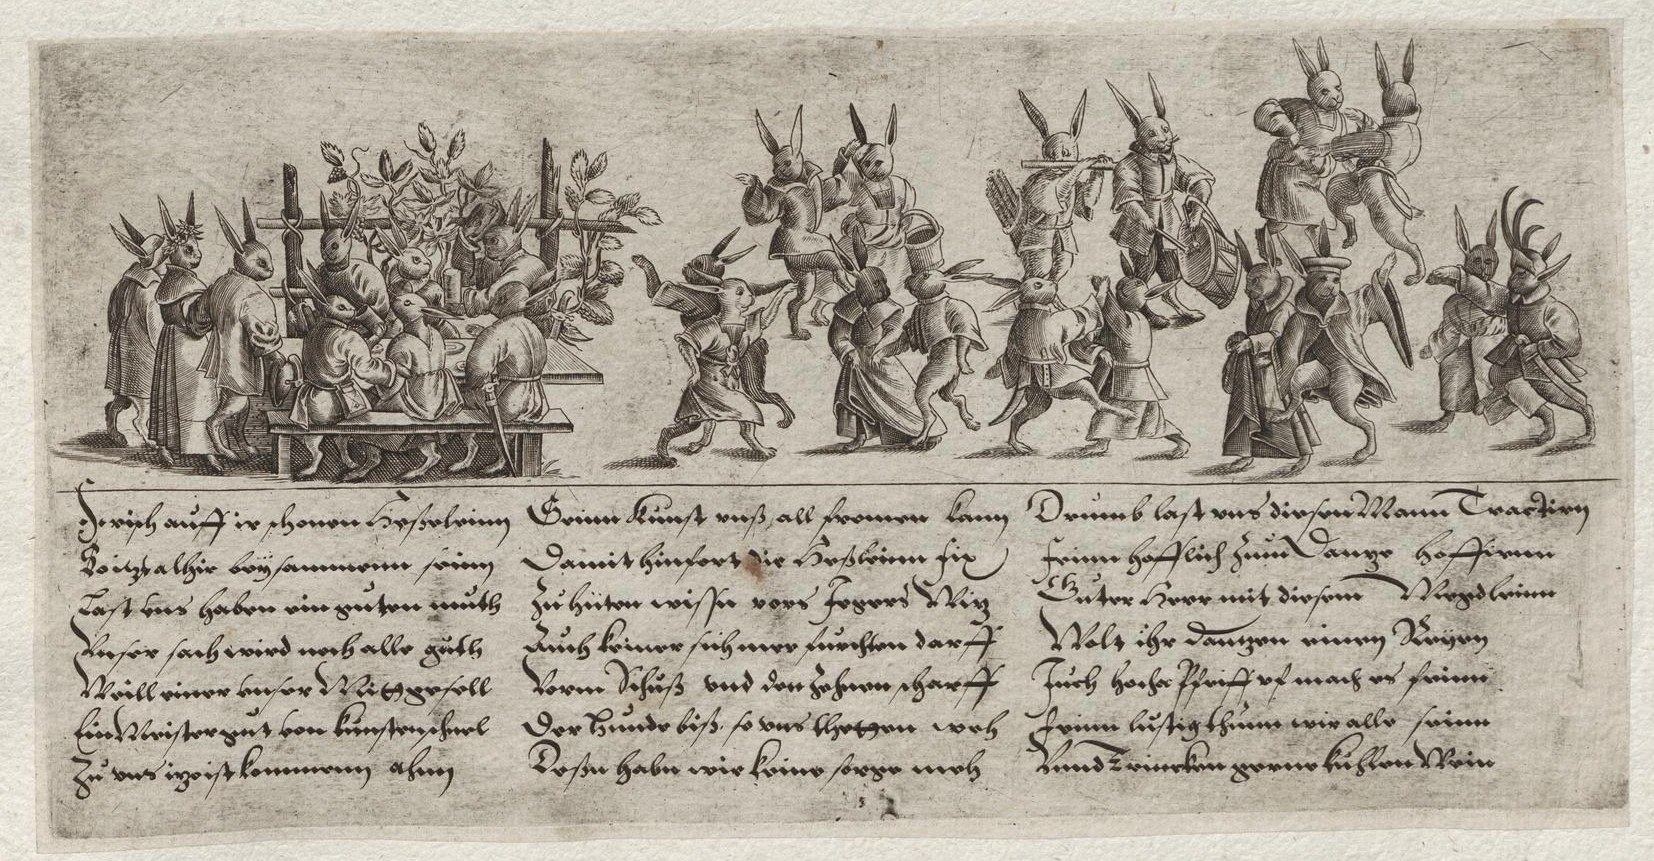 Frisch auff ir schonen Heßeleinn
Itzt alhir beysammenn seinn
Last uns haben ein guten muth
Unser sach wird noch alle guth
Weill einer unser Mittgesell
Ein Meister gut von kunsten schnel
Zu uns itzo ist kommenn ahnn
Seinn kunst unß all fromen kann
Damit hinfort die Heßleinn fix
Zu hüten wissn vors Jegers
Auch keiner sich mer furchten darff
Vorm Schuß und den Zehnen scharff
Der Hunde biß so uns thetten weh
Deßn habn wir keine sorge meh
Drumb last uns diesen Mann Tractirn
Feinn hofflich zum Dantze hoffirnn
Guter Herr mit diesem Megdleinn
Wolt ihr dantzen einen Reyen
Juch hocha Pfeiff uf mach es feinn
Feinn lustig thunn wir alle seinn
Unnd Trincken gerne kuhlen Wein
5